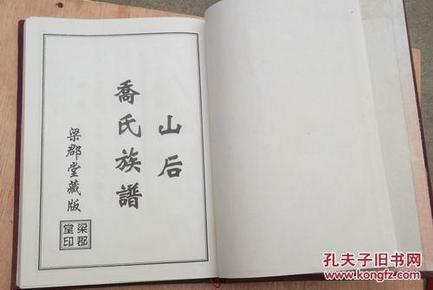 山后
喬氏族譜
梁郡堂藏版
梁郡
堂印
孔夫子旧书网
www.kongfz.com